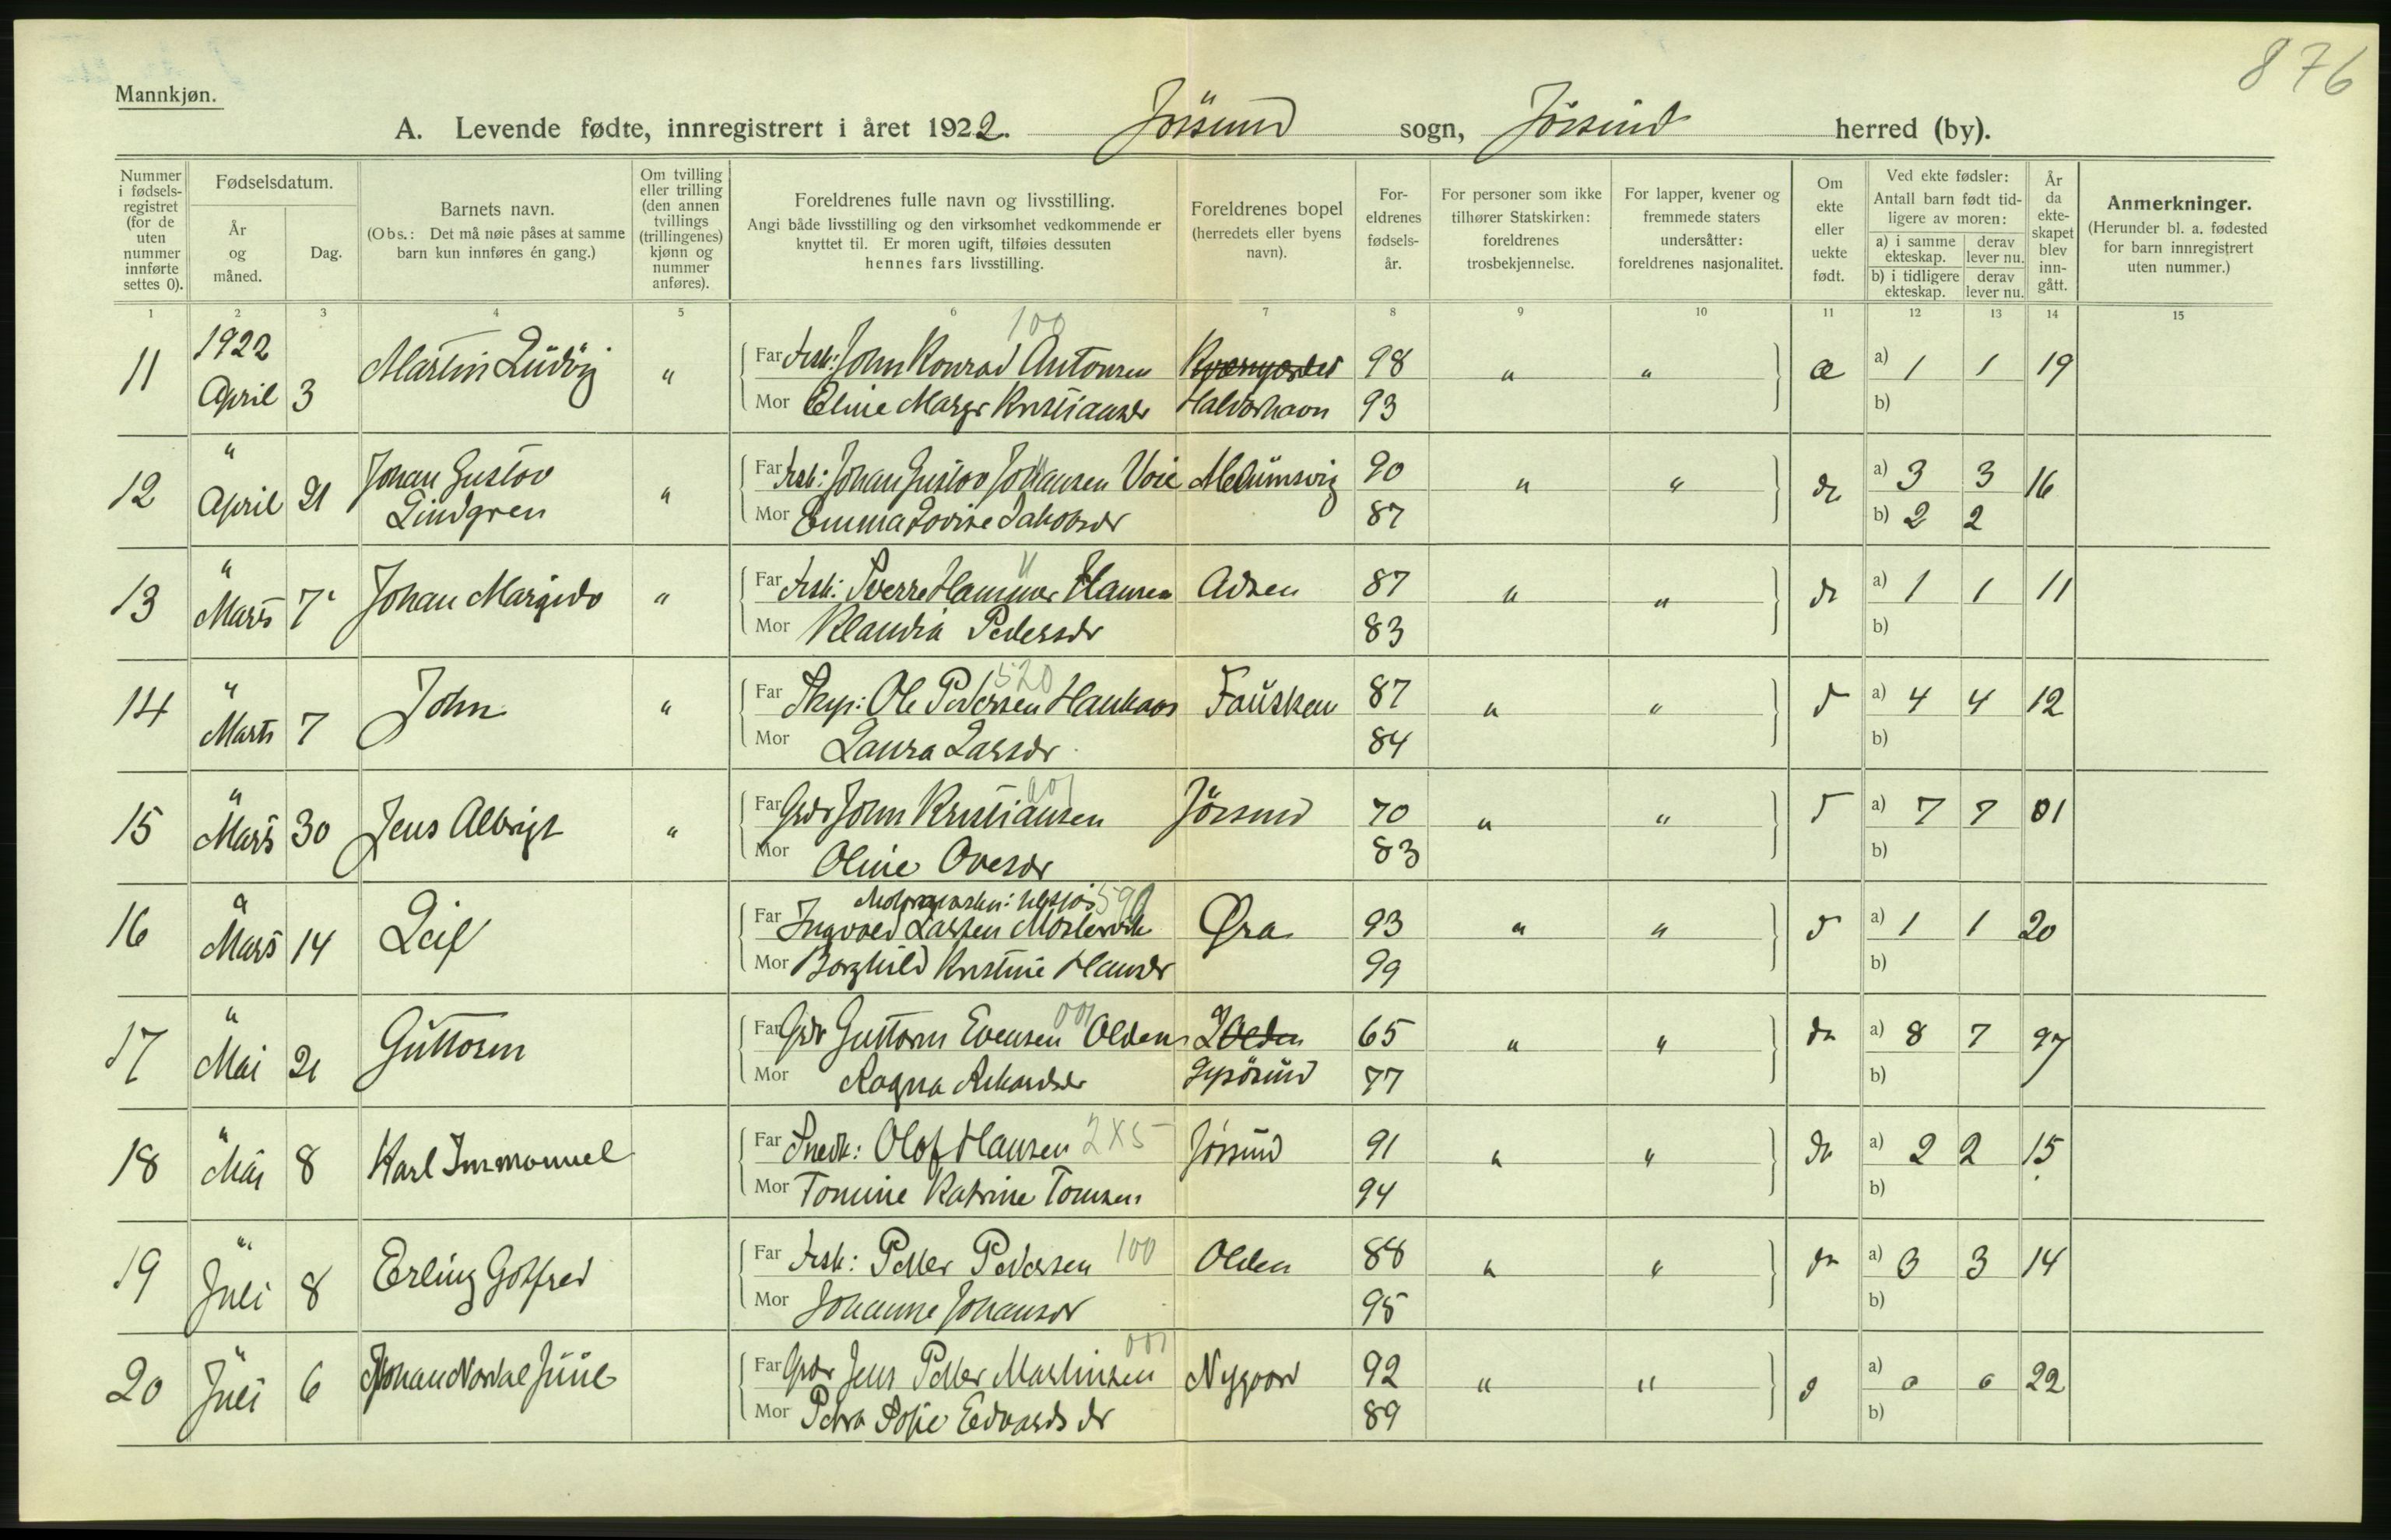 876
Mannkjøn.
A. Levende fødte, innregistrert i året 1922. Jössund sogn, Jössund herred (by).
Nummer i fødsels-registret (for de uten nummer innførte settes 0).
Fødselsdatum.
År og måned.
Dag.
Barnets navn.
(Obs.: Det må nøie påses at samme barn kun innføres én gang.)
Om tvilling eller trilling (den annen tvillings (trillingenes) kjønn og nummer anføres).
Foreldrenes fulle navn og livsstilling.
Angi både livsstilling og den virksomhet vedkommende er knyttet til. Er moren ugift, tilføies dessuten hennes fars livsstilling.
Foreldrenes bopel (herredets eller byens navn).
For-eldrenes fødsels-år.
For personer som ikke tilhører Statskirken: foreldrenes trosbekjennelse.
For lapper, kvener og fremmede staters undersåtter: foreldrenes nasjonalitet.
Om ekte eller uekte født.
Ved ekte fødsler:
Antall barn født tid-ligere av moren:
a) i samme ekteskap. derav lever nu.
b) i tidligere ekteskap. derav lever nu.
År da ekte-skapet blev inn-gått.
Anmerkninger.
(Herunder bl. a. fødested for barn innregistrert uten nummer.)
1 2 3 4 5 6 7 8 9 10 11 12 13 14 15
100
11 1922 April 3 Martin Ludvig " Far Fisk: John Konrad Antonsen 98 " " a) 1 1 19
Mor Eline Margr Kristiansdr 93 b)
12 " April 21 Johan Gustav Lindgren " Far Fisk: Johan Gustav Johansen Voie 90 " " do a) 3 3 16
Mor Emma Lovise Jakobsdr 87 b) 2 2
13 " Mars 7 Johan Margido " Far Fisk: Sverre Hammer Hansen 87 " " do a) 1 1 11
Mor Klaudia Pedersdr 83 b)
520
14 " Marts 7 John " Far Ole Pedersen Haukaas Fausken 87 " " a) 4 4 12
Mor Laura Larsdr 84 b)
001
15 " Mars 30 Jens Albrigt " Far Gdr John Kristiansen Jössund 70 " " a) 7 7 01
Mor Oline Ovesdr 83 b)
590
16 " Mars 14 Leif Far Ingvald Larsen Øra 93 " " a) 1 1 20
Mor Borghild Kristine Hansdr 99 b)
001
17 " Mai 21 Guttorm Far Gdr Guttorm Evensen Olden Olden 65 " " do a) 8 7 97
Mor Ragna Rikardsdr 77 b)
18 " Mai 8 Karl Immanuel Far Snedk: Olof Hansen 2X5 Jössund 91 " " do a) 2 2 15
Mor Tomine Katrine Tomsen 94 b)
19 " Juli 8 Erling Gotfred Far Fisk: Petter Pedersen 100 Olden 88 " " do a) 3 3 14
Mor Johanne Johansdr 95 b)
001
20 " Juli 6 Johan Norval Juul Far Gdr Jens Petter Martinsen Nygaard 92 " " a) 0 0 22
Mor Petra Sofie Edvardsdr 89 b)